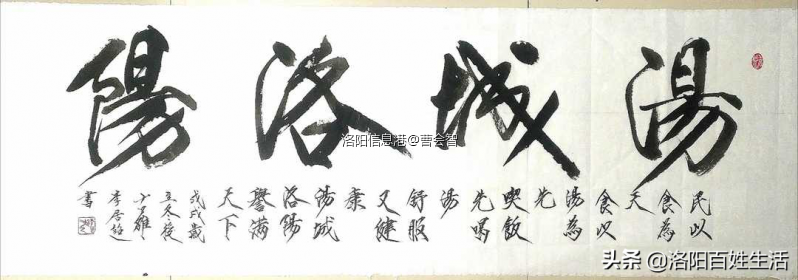 湯城洛陽
民以
食為
天
食以
湯為
先
喫飯
先喝
湯
舒服
又健
康
湯城
洛陽
譽滿
天下
戊戌歲
立冬後
李居
書
洛阳信息港@曹会智
头条 @洛阳百姓生活